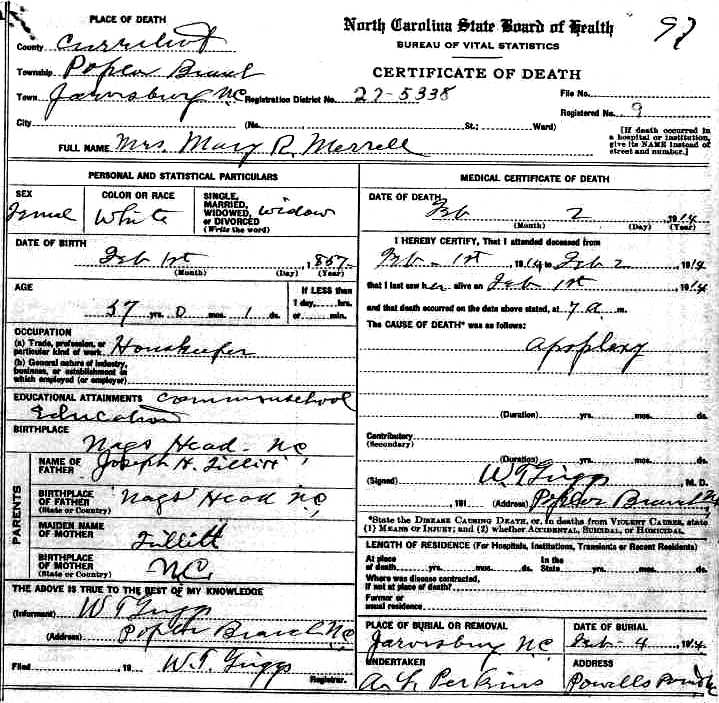 PLACE OF DEATH
County Currituck
Township Poplar Branch
Town Jarvisburg N.C. Registration District No. 27-5338
City (No. St.; Ward)
North Carolina State Board of Health
BUREAU OF VITAL STATISTICS
CERTIFICATE OF DEATH
97
File No.
Registered No. 9
[If death occurred in a hospital or institution, give its NAME instead of street and number.]
FULL NAME Mrs. Mary R. Merrell
PERSONAL AND STATISTICAL PARTICULARS
SEX
COLOR OR RACE
White
SINGLE, MARRIED, WIDOWED, OR DIVORCED (Write the word)
Widow
DATE OF BIRTH
Feb 1st, 1857
(Month) (Day) (Year)
AGE
57 yrs. 0 mos. 1 ds.
If LESS than 1 day,....hrs. or ....min.
OCCUPATION
(a) Trade, profession, or particular kind of work Houskeeper
(b) General nature of industry, business, or establishment in which employed (or employer)
EDUCATIONAL ATTAINMENTS Common school
Education
BIRTHPLACE
Nags Head N.C.
PARENTS
NAME OF FATHER
Joseph H. Tillitt
BIRTHPLACE OF FATHER (State or Country)
Nags Head N.C.
MAIDEN NAME OF MOTHER
Tillitt
BIRTHPLACE OF MOTHER (State or Country)
N.C.
THE ABOVE IS TRUE TO THE BEST OF MY KNOWLEDGE
(Informant) W T Griggs
(Address) Poplar Branch N.C.
Filed , 19 W. T. Griggs
Registrar.
MEDICAL CERTIFICATE OF DEATH
DATE OF DEATH
Feb 2 1914
(Month) (Day) (Year)
I HEREBY CERTIFY, That I attended deceased from
Feb - 1st, 1914 to Feb 2 1914
that I last saw her alive on Feb 1st 1914
and that death occurred on the date above stated, at 7 a m.
The CAUSE OF DEATH* was as follows:
apoplexy
(Duration) yrs. mos. ds.
Contributory
(Secondary)
(Duration) yrs. mos. ds.
(Signed) W T Griggs, M. D.
, 191 (Address) Poplar Branch N.C.
*State the DISEASE CAUSING DEATH, or, in deaths from VIOLENT CAUSES, state (1) MEANS OF INJURY; and (2) whether ACCIDENTAL, SUICIDAL, OR HOMICIDAL.
LENGTH OF RESIDENCE (For Hospitals, Institutions, Transients or Recent Residents)
At place of death yrs. mos. ds. In the State yrs. mos. ds.
Where was disease contracted, if not at place of death?
Former or usual residence
PLACE OF BURIAL OR REMOVAL
Jarvisburg N.C.
DATE OF BURIAL
Feb - 4, 1914
UNDERTAKER
ADDRESS
Perkins
Powells Point